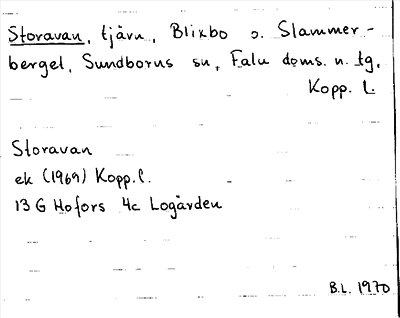 Storavan, tjärn, Blixbo o. Slammer-
berget, Sundborns sn, Falu doms. n. tg,
Kopp. l.
Storavan
ek (1969) Kopp.l.
13 G Hofors 4c Logärden
B.L. 1970